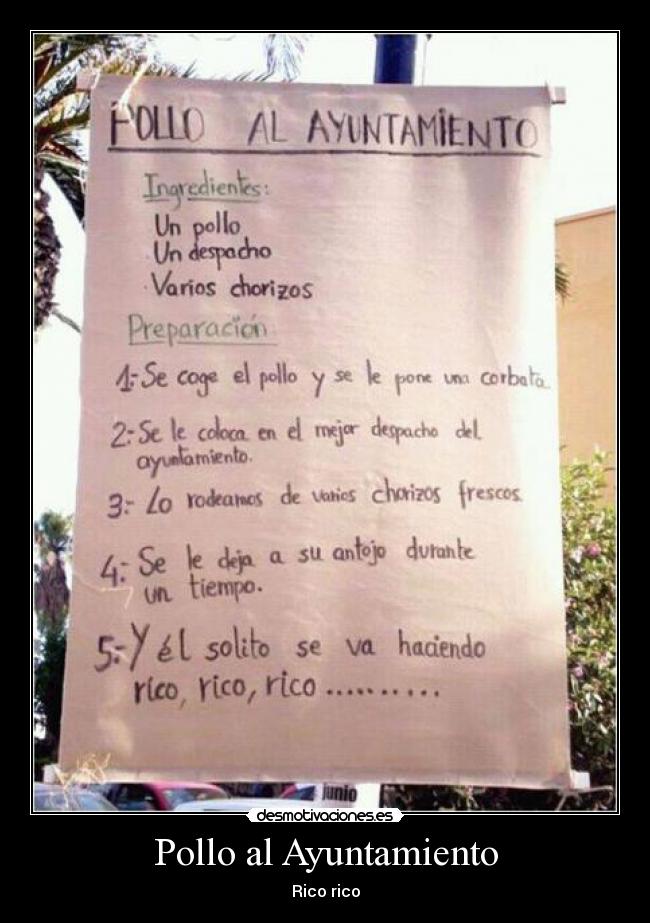 POLLO AL AYUNTAMIENTO
Ingredientes:
Un pollo
Un despacho
Varios chorizos
Preparación
1:- Se coge el pollo y se le pone una corbata
2:- Se le coloca en el mejor despacho del
ayuntamiento.
3:- Lo rodeamos de varios chorizos frescos.
4:- Se le deja a su antojo durante
un tiempo.
5:- Y él solito se va haciendo
rico, rico, rico ..........
junio
desmotivaciones.es
Pollo al Ayuntamiento
Rico rico